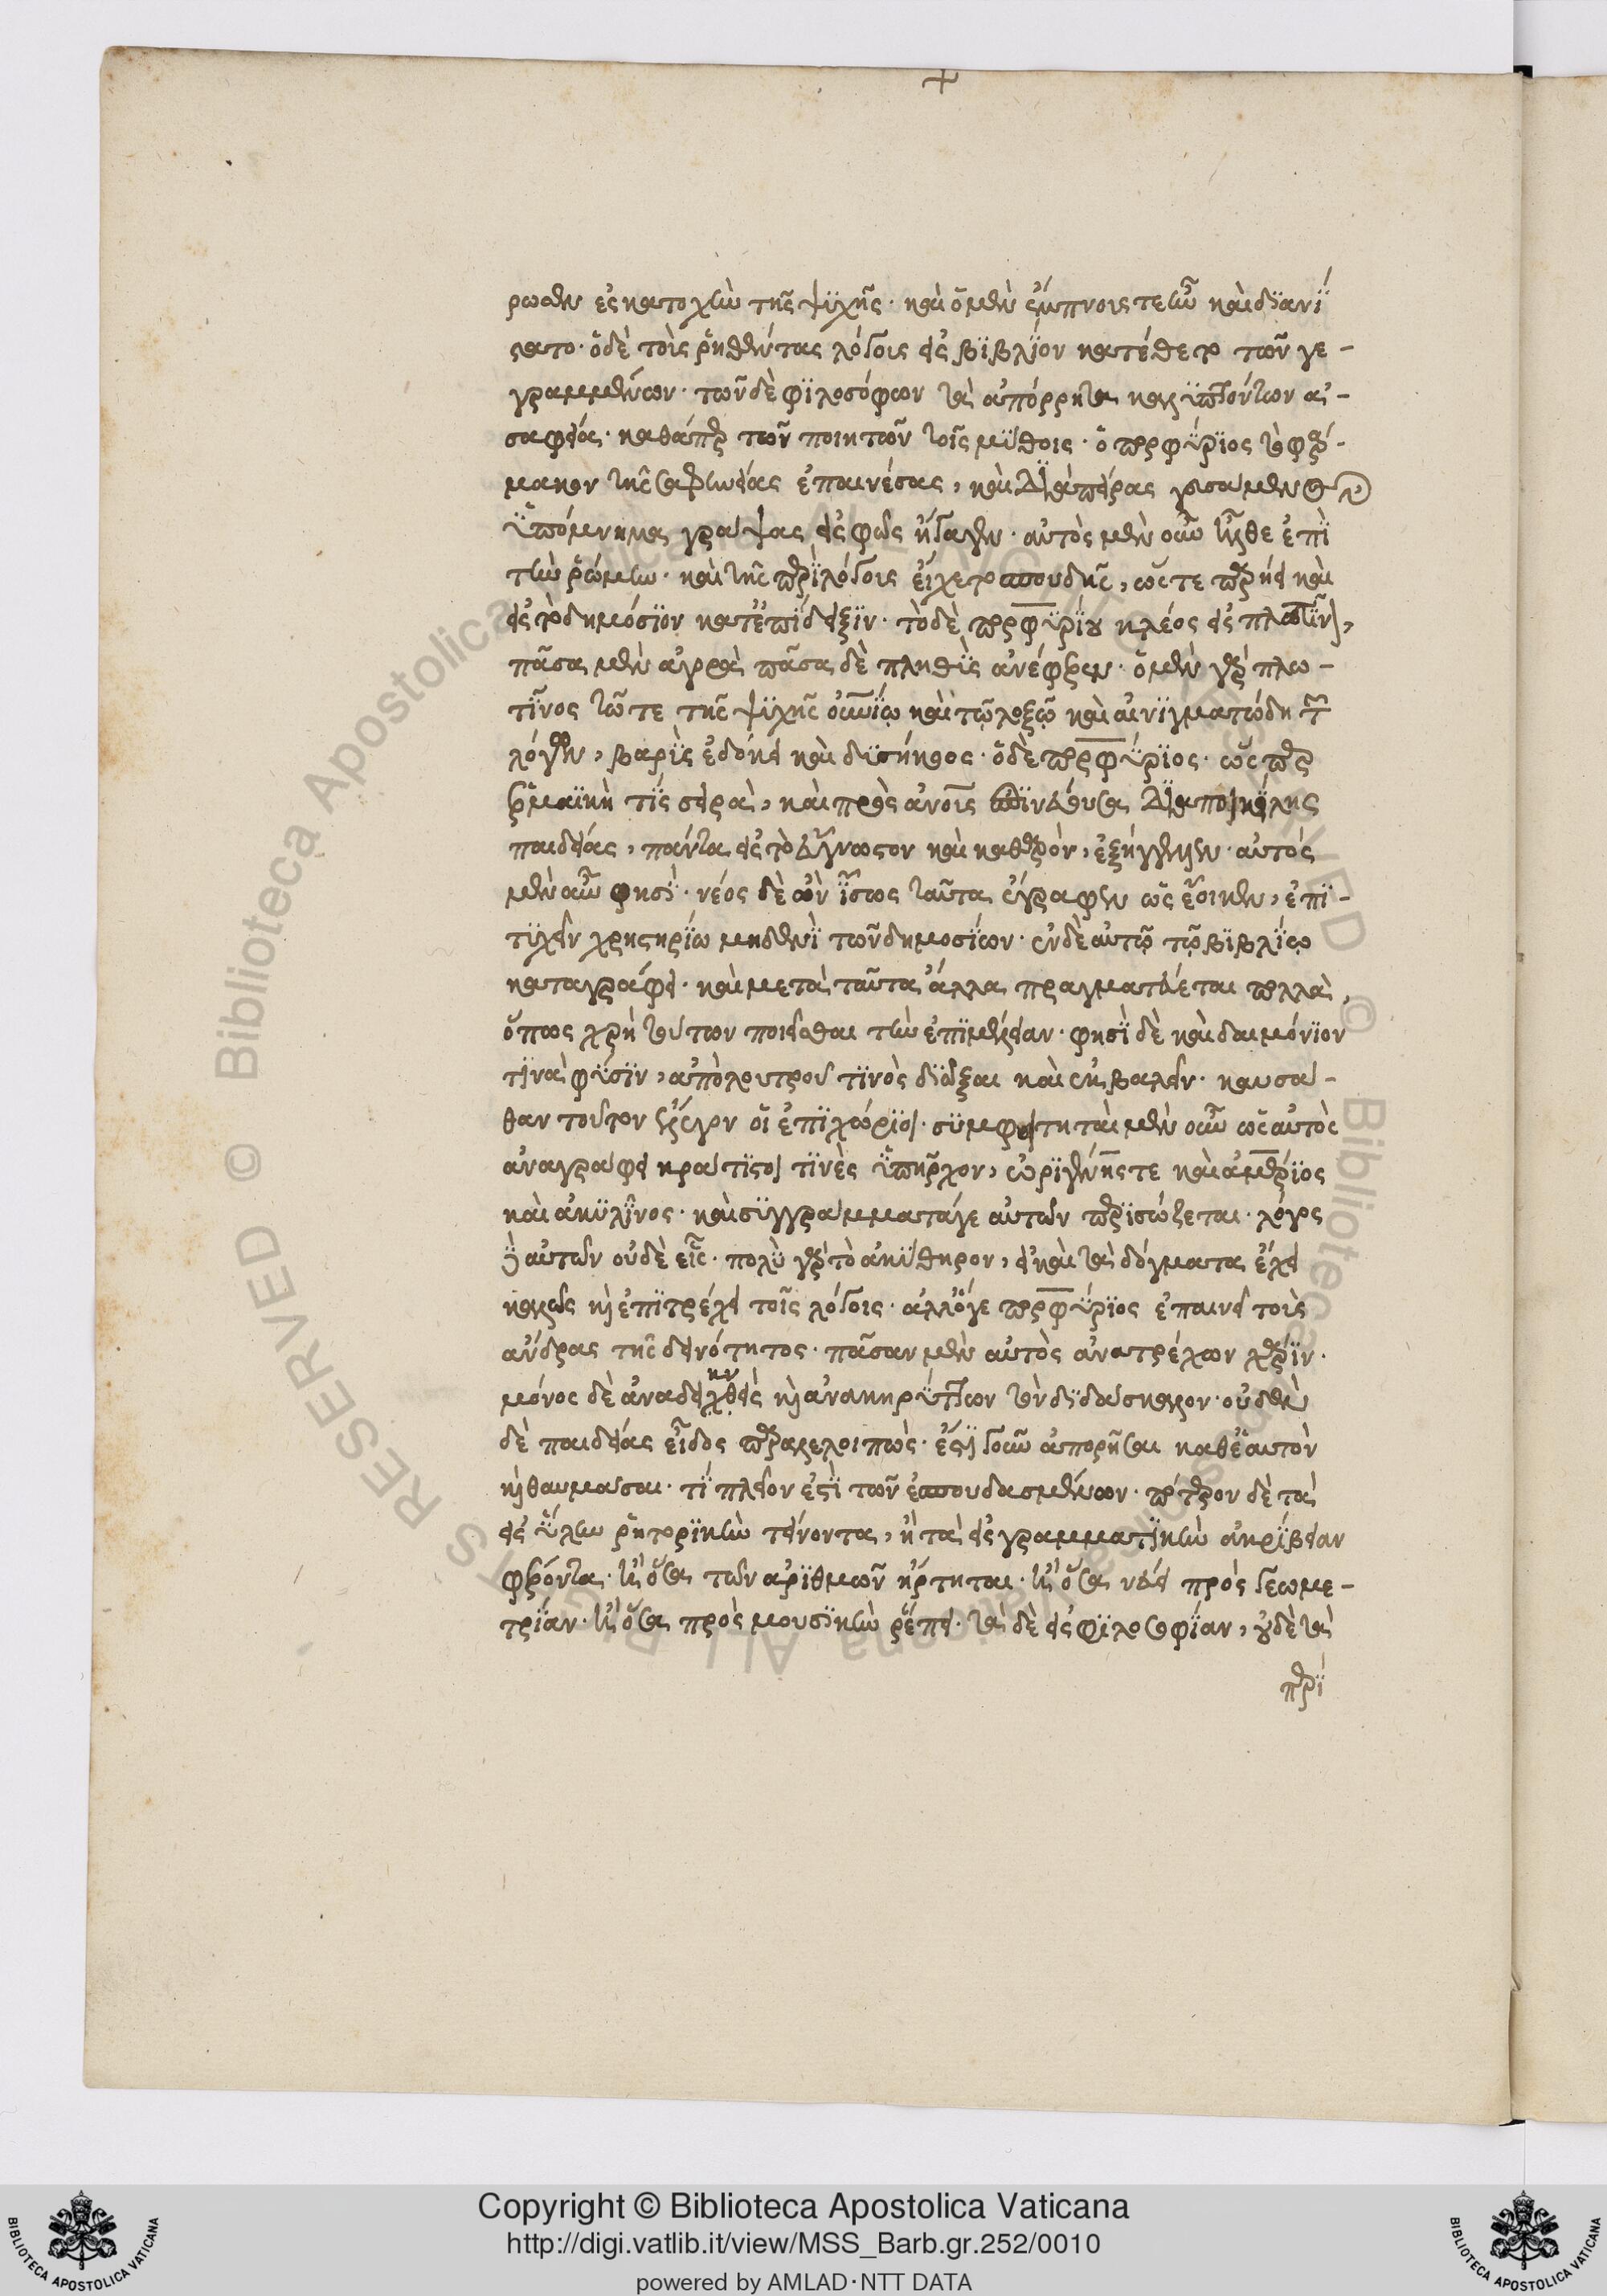 ρωσιν ἐς κατοχὴν τῆς ψυχῆς· καὶ ὁ μὲν ἔμπνους τε ἦν καὶ διανί
στατο· ὁ δὲ τοὺς ῥηθέντας λόγους εἰς βιβλίον κατέθετο τῶν γε-
γραμμένων· τῶν δὲ φιλοσόφων τὰ ἀπόρρητα καλυπτόντων ἀ-
σαφείᾳ· καθάπερ τῶν ποιητῶν τοῖς μύθοις· ὁ πορφύριος τὸ φάρ-
μακον τῆς σαφηνείας ἐπαινέσας, καὶ διὰ πείρας γευσάμενος
ὑπόμνημα γράψας εἰς φῶς ἤγαγεν· αὐτὸς μὲν οὖν ἦλθε ἐπὶ
τὴν ῥώμην· καὶ τῆς περὶ λόγους εἴχετο σπουδῆς, ὥστε παρῄει καὶ
εἰς τὸ δημόσιον κατ' ἐπίδειξιν· τὸ δὲ πορφυρίου κλέος εἰς πλωτῖνον,
πᾶσα μὲν ἀγορὰ πᾶσα δὲ πληθὺς ἀνέφερεν· ὁ μὲν γὰρ πλω-
τῖνος τῷ τε τῆς ψυχῆς οὐρανίῳ καὶ τῷ λοξῷ καὶ αἰνιγματώδει τῶν
λόγων, βαρὺς ἐδόκει καὶ δυσήκοος· ὁ δὲ πορφύριος· ὥσπερ
ἑρμαϊκή τις σειρὰ, καὶ πρὸς ἀνθρώπους ἐπινεύουσα διὰ ποικίλης
παιδείας, πάντα εἰς τὸ εὔγνωστον καὶ καθαρόν, ἐξήγγελλεν· αὐτὸς
μὲν οὖν φησὶ· νέος δὲ ὢν ἴσως ταῦτα ἔγραφεν ὡς ἔοικεν, ἐπι-
τυχεῖν χρηστηρίῳ μηδενὶ τῶν δημοσίων· ἐν δὲ αὐτῷ τῷ βιβλίῳ
καταγράφει· καὶ μετὰ ταῦτα ἄλλα πραγματεύεται πολλὰ,
ὅπως χρὴ τούτων ποιεῖσθαι τὴν ἐπιμέλειαν· φησὶ δὲ καὶ δαιμόνιόν
τινα φύσιν, ἀπὸ λουτροῦ τινὸς διῶξαι καὶ ἐκβαλεῖν· καυσά-
θαν τοῦτον ἔλεγον οἱ ἐπιχώριοι· συμφοιτηταὶ μὲν οὖν ὡς αὐτὸς
ἀναγράφει κράτιστοί τινὲς ὑπῆρχον, ὠριγένης τε καὶ ἀμέριος
καὶ ἀκυλῖνος· καὶ συγγράμματά γε αὐτῶν περισώζεται· λόγος
δὲ αὐτῶν οὐδὲ εἷς· πολὺ γὰρ τὸ ἀκύθηρον, εἰ καὶ τὰ δόγματα ἔχει
καλῶς καὶ ἐπιτρέχει τοῖς λόγοις· ἀλλ' ὅ γε πορφύριος ἐπαινεῖ τοὺς
ἄνδρας τῆς δεινότητος· πᾶσαν μὲν αὐτὸς ἀνατρέχων χάριν·
μόνος δὲ ἀναδεικνὺς καὶ ἀνακηρύττων τὸν διδάσκαλον· οὐδὲν
δὲ παιδείας εἶδος παραλελοιπώς· ἔστι γοῦν ἀπορῆσαι καθ' ἑαυτὸν
καὶ θαυμάσαι· τί πλεῖόν ἐστὶ τῶν ἐσπουδασμένων· πότερον δὲ τὰ
εἰς ὕλην ῥητορικὴν τείνοντα, ἢ τὰ εἰς γραμματικὴν ἀκρίβειαν
φέροντα· ἢ ὅσα τῶν ἀριθμῶν ἤρτηται· ἢ ὅσα νεύει πρὸς γεωμε-
τρίαν· ἢ ὅσα πρὸς μουσικὴν ῥέπει· τὰ δὲ εἰς φιλοσοφίαν, οὐδὲ τὰ
περὶ
Copyright © Biblioteca Apostolica Vaticana
http://digi.vatlib.it/view/MSS_Barb.gr.252/0010
powered by AMLAD·NTT DATA